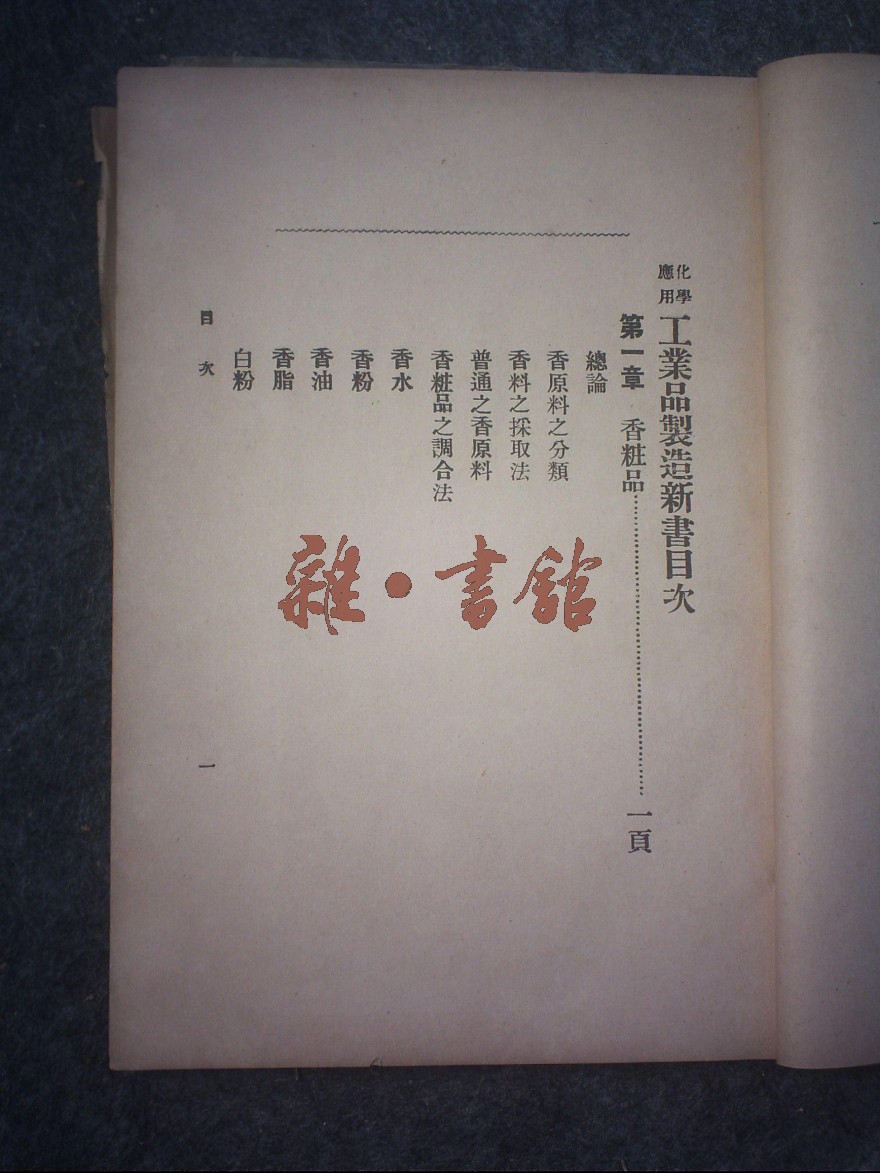 化學應用工業品製造新書目次
第一章 香粧品……一頁
總論
香原料之分類
香料之採取法
普通之香原料
香粧品之調合法
香水
香粉
香油
香脂
白粉
目次
一
雜·書館